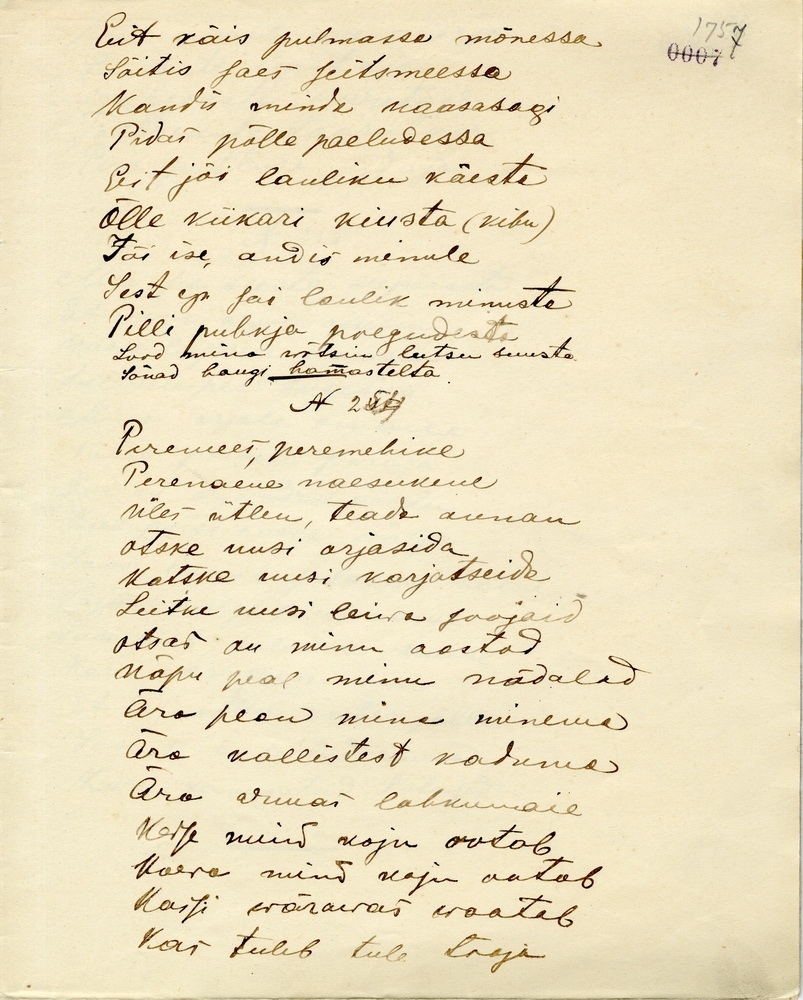 1757
0007
Eit käis pulmassa mönessa
Söitis saes seitsmeessa
Kandis minda kaasasagi
Pidas pölle paeludessa
Eit jöi lauliku käesta
Ölle kiikari kiusta (kibu)
Jöi ise, andis minule
Sest sai laulik minusta
Pilli puhkja poegudesta
Lood mina wötsin luitsu suusta
Sönad haugi hamastelta
N 2
Peremees, peremehike
Perenaene naesukene
Üles ütlen, teada annan
otske uusi orjasida
Katske uusi karjatseida
Leitke uusi leiwa soojaid
otsas on minu aastad
Näpu peal minu nädalad
Ära pean mina minema
Ära kallistest kaduma
Ära armas lahkumaie
Kerje mind koju ootab
Koera mind koju ootab
Kassi wärawas waatab
Kas tuleb tule tooja